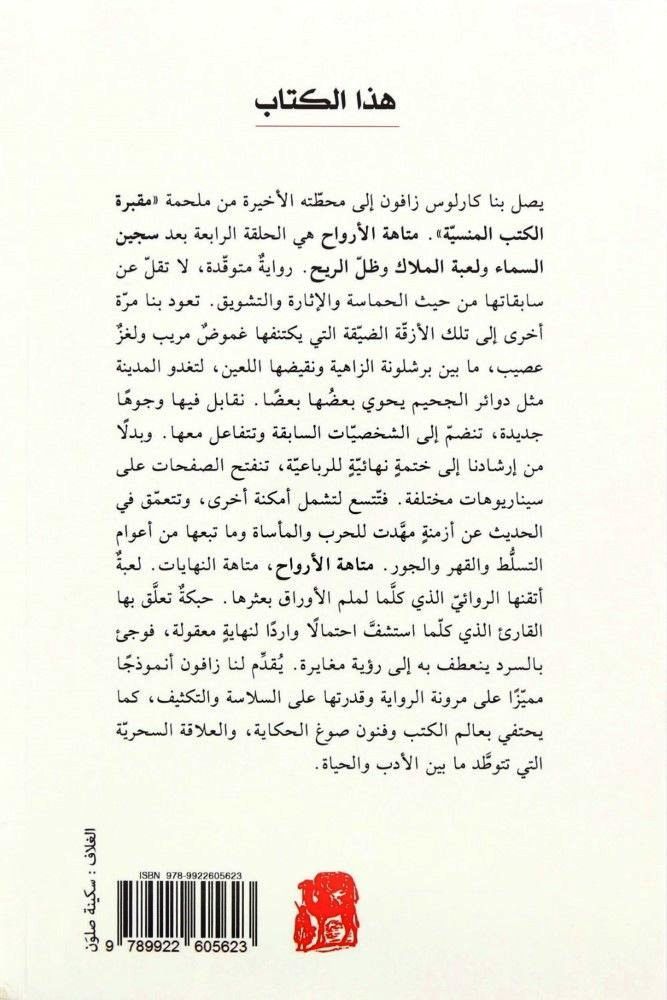 هذا الكتاب
يصل بنا كارلوس زافون إلى محطّته الأخيرة من ملحمة «مقبرة
الكتب المنسيّة». متاهة الأرواح هي الحلقة الرابعة بعد سجين
السماء ولعبة الملاك وظلّ الريح. روايةٌ متوقّدة، لا تقلّ عن
سابقاتها من حيث الحماسة والإثارة والتشويق. تعود بنا مرّة
أخرى إلى تلك الأزقّة الضيّقة التي يكتنفها غموضٌ مريب ولغزٌ
عصيب، ما بين برشلونة الزاهية ونقيضها اللعين، لتغدو المدينة
مثل دوائر الجحيم يحوي بعضُها بعضًا. نقابل فيها وجوهًا
جديدة، تنضمّ إلى الشخصيّات السابقة وتتفاعل معها. وبدلًا
من إرشادنا إلى ختمةٍ نهائيّةٍ للرباعيّة، تنفتح الصفحات على
سيناريوهات مختلفة. فتّتسع لتشمل أمكنة أخرى، وتتعمّق في
الحديث عن أزمنةٍ مهَّدت للحرب والمأساة وما تبعها من أعوام
التسلُّط والقهر والجور. متاهة الأرواح، متاهة النهايات. لعبةٌ
أتقنها الروائيّ الذي كلَّما لملم الأوراق بعثرها. حبكةٌ تعلَّق بها
القارئ الذي كلّما استشفَّ احتمالًا واردًا لنهايةٍ معقولة، فوجئ
بالسرد ينعطف به إلى رؤية مغايرة. يُقدِّم لنا زافون أنموذجًا
مميّزًا على مرونة الرواية وقدرتها على السلاسة والتكثيف، كما
يحتفي بعالم الكتب وفنون صوغ الحكاية، والعلاقة السحريّة
التي تتوطَّد ما بين الأدب والحياة.
الغلاف : سكينة صلوَن
ISBN 978-9922605623
9 789922 605623